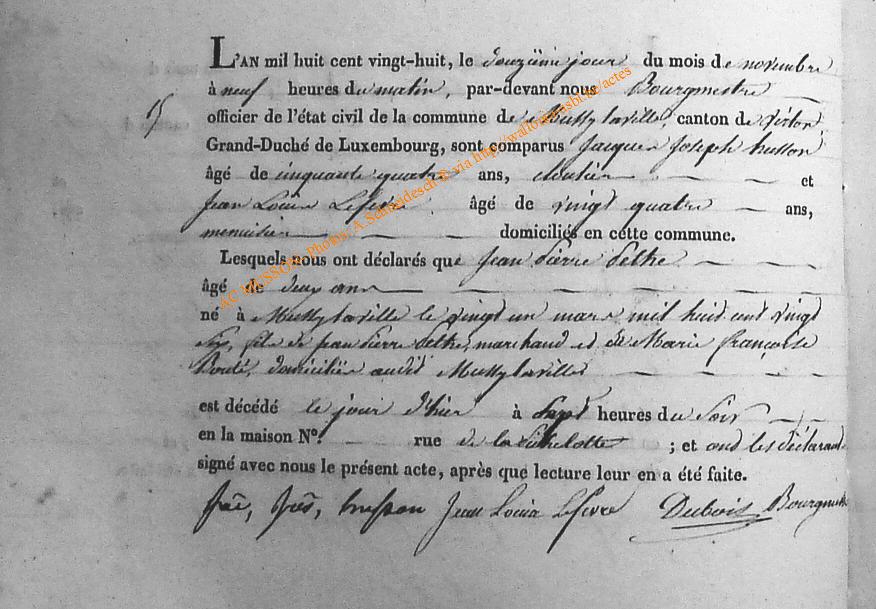 L'AN mil huit cent vingt-huit, le douzième jour du mois de novembre
à neuf heures du matin, par-devant nous Bourgmestre
officier de l'état civil de la commune de Mussy la ville, canton de Virton
Grand-Duché de Luxembourg, sont comparus Jacques Joseph husson
âgé de cinquante quatre ans, cloutier et
Jean Louis Lefevre âgé de vingt quatre ans,
menuisier domiciliés en cette commune.
Lesquels nous ont déclarés que Jean Pierre
âgé de deux ans
né à Mussy la ville le vingt un mars mil huit cent vingt
six, fils de jean Pierre marchand et de Marie françoise
domiciliés audit Mussy la ville
est décédé le jour d'hier à sept heures du soir
en la maison N°. rue de la ; et ont les déclarans
signé avec nous le présent acte, après que lecture leur en a été faite.
husson Jean Louis Lefevre Dubois Bourgmestre
AC MUSSON - Photos: A.Schneidesch © via http://wallonia.asbl.be/actes